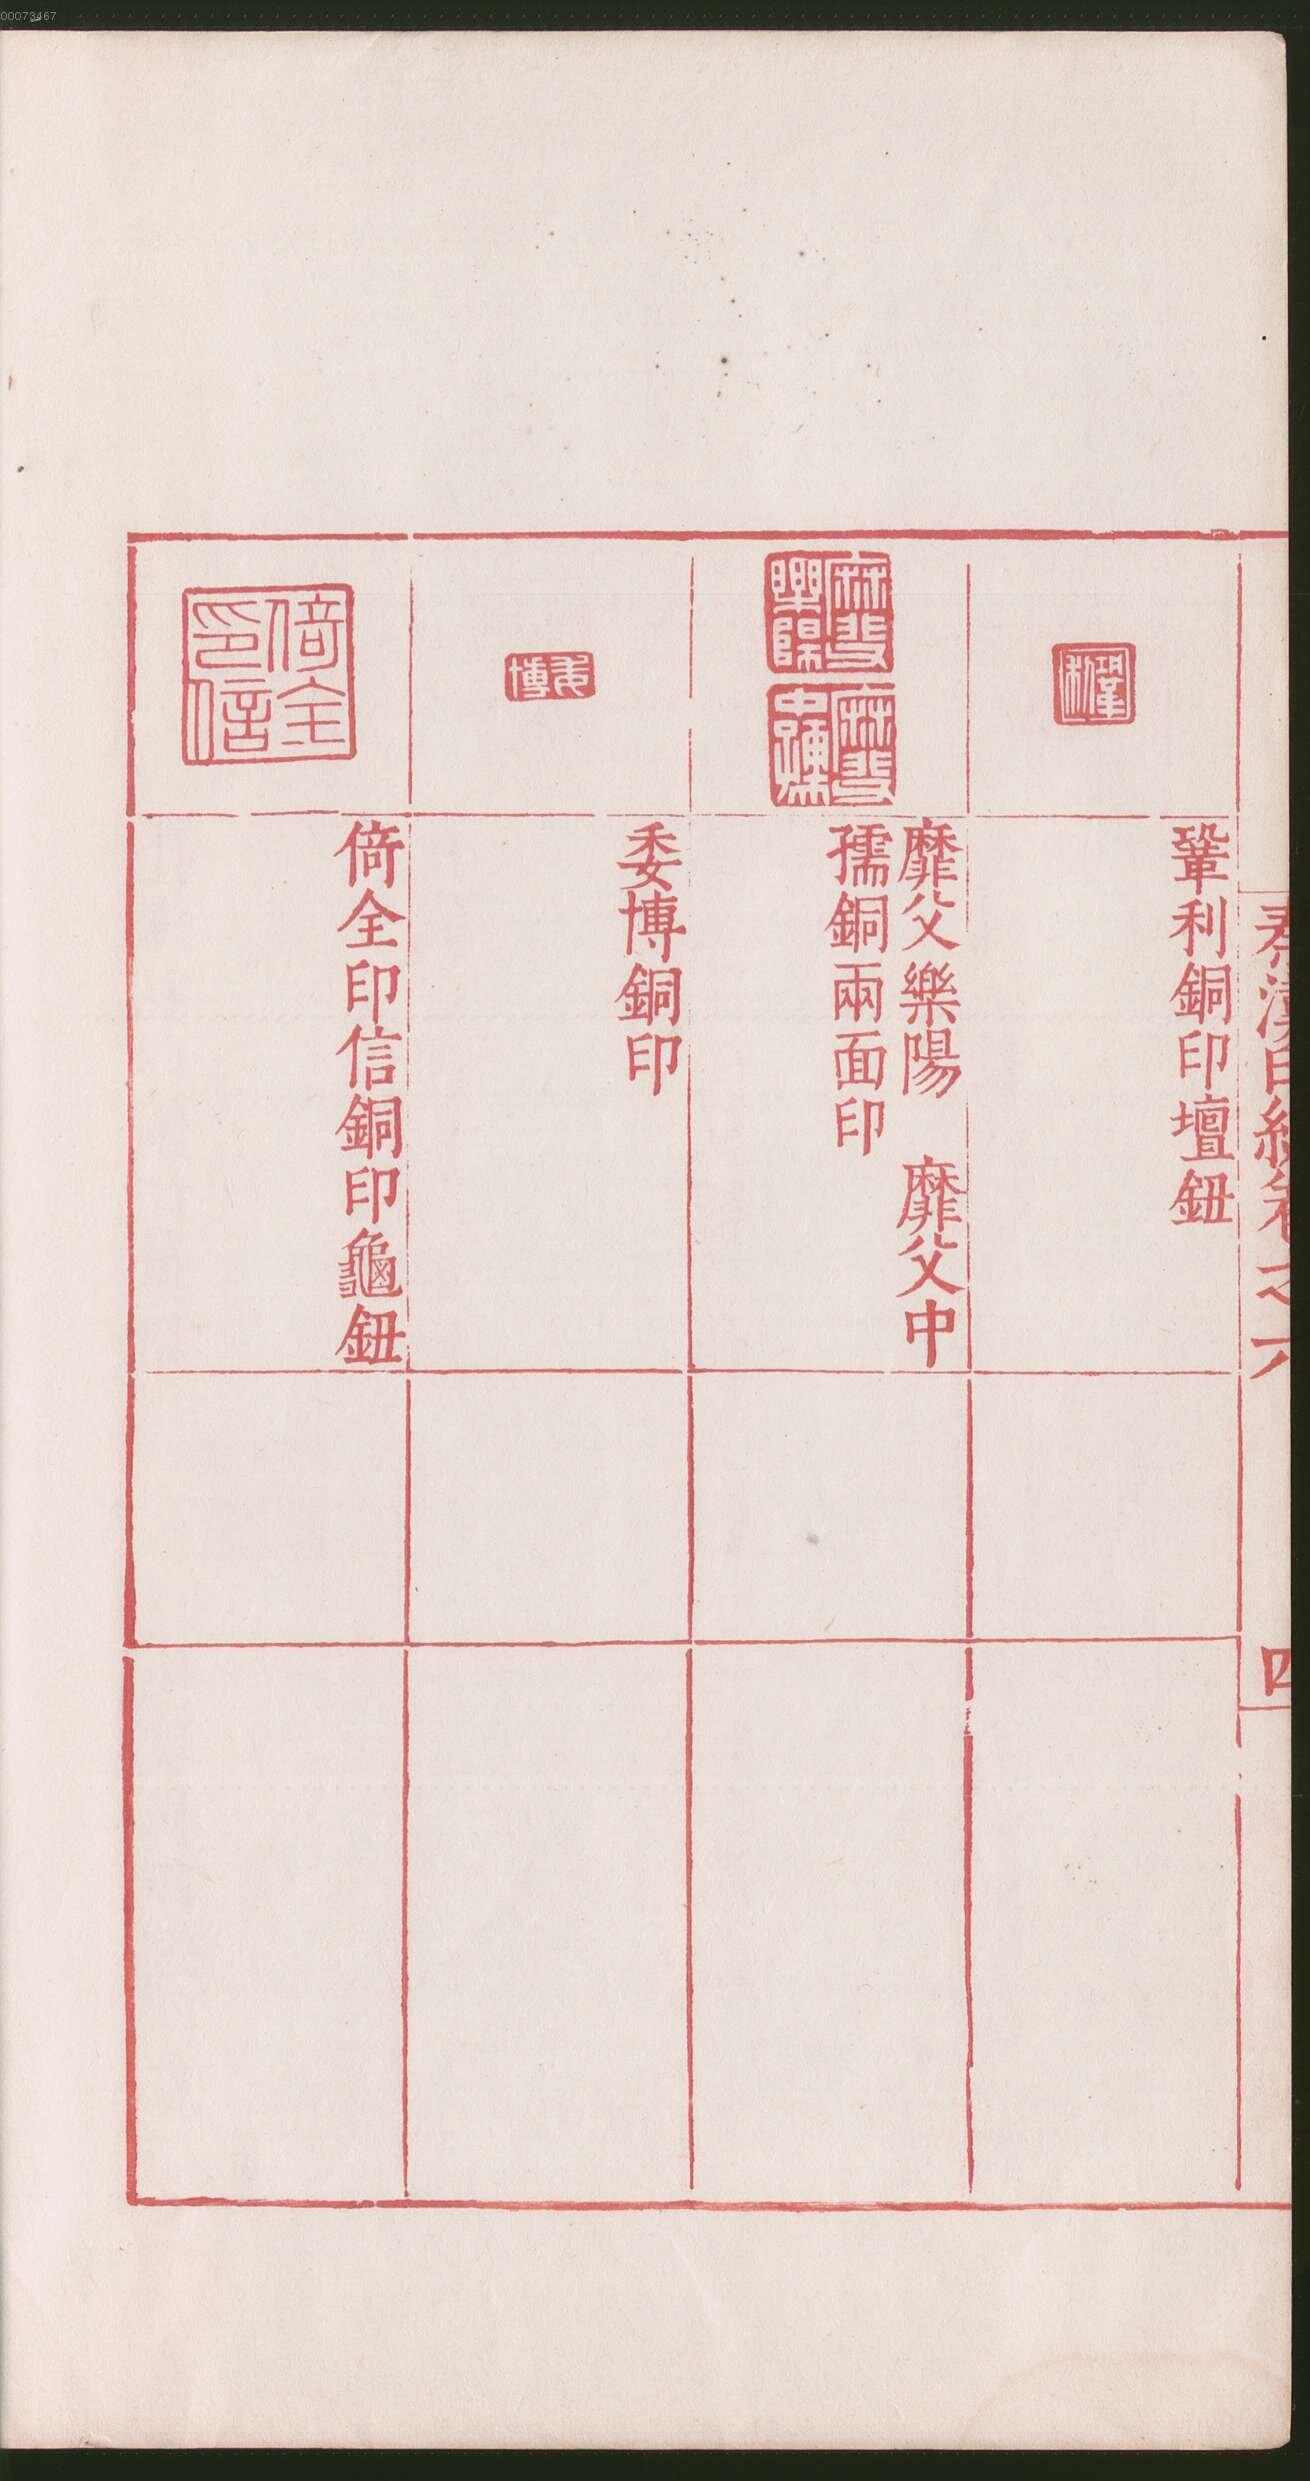 00073467
秦漢印統卷之六
四
鞏利
鞏利銅印壇鈕
靡父樂陽　靡父中
孺銅兩面印
委博
委博銅印
倚全印信
倚全印信銅印龜鈕